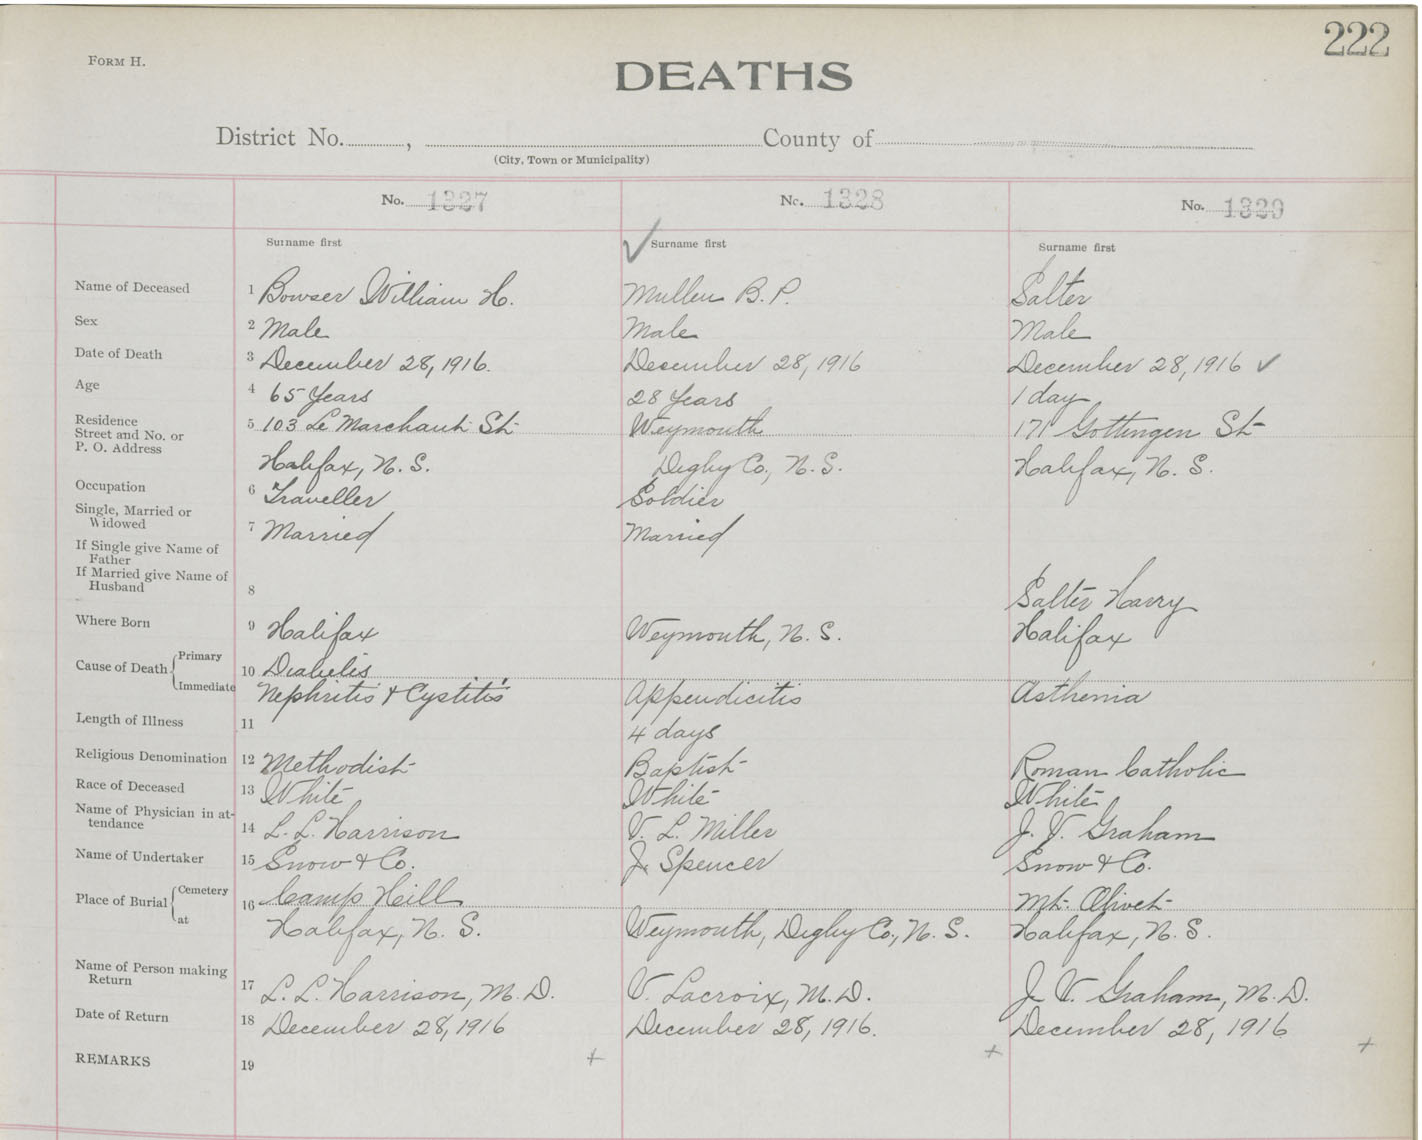 222
FORM H.
DEATHS
District No. , County of
(City, Town or Municipality)
No. 1327 No. 1328 No. 1329
Surname first Surname first Surname first
Name of Deceased 1 Bowser William H. Mullen B. P. Salter
Sex 2 Male Male Male
Date of Death 3 December 28, 1916. December 28, 1916 December 28, 1916 ✓
Age 4 65 Years 28 Years 1 day
Residence
Street and No. or 5 103 Le Marchant St Weymouth 171 Gottingen St
P. O. Address
Halifax, N. S. Digby Co., N. S. Halifax, N. S.
Occupation 6 Traveller Soldier
Single, Married or
Widowed 7 Married Married
If Single give Name of
Father
If Married give Name of
Husband 8 Salter Harry
Where Born 9 Halifax Weymouth, N. S. Halifax
Cause of Death Primary 10 Diabetis
Immediate Nephritis & Cystitis Appendicitis Asthenia
Length of Illness 11 4 days
Religious Denomination 12 Methodist Baptist Roman Catholic
Race of Deceased 13 White White White
Name of Physician in at-
tendance 14 L. L. Harrison V. L. Miller J. V. Graham
Name of Undertaker 15 Snow & Co. J Spencer Snow & Co.
Place of Burial Cemetery 16 Camp Hill Mt. Olivet
at Halifax, N. S. Weymouth, Digby Co., N. S. Halifax, N. S.
Name of Person making
Return 17 L. L. Harrison, M. D. V. Lacroix, M. D. J. V. Graham, M. D.
Date of Return 18 December 28, 1916 December 28, 1916. December 28, 1916
REMARKS 19 + + +